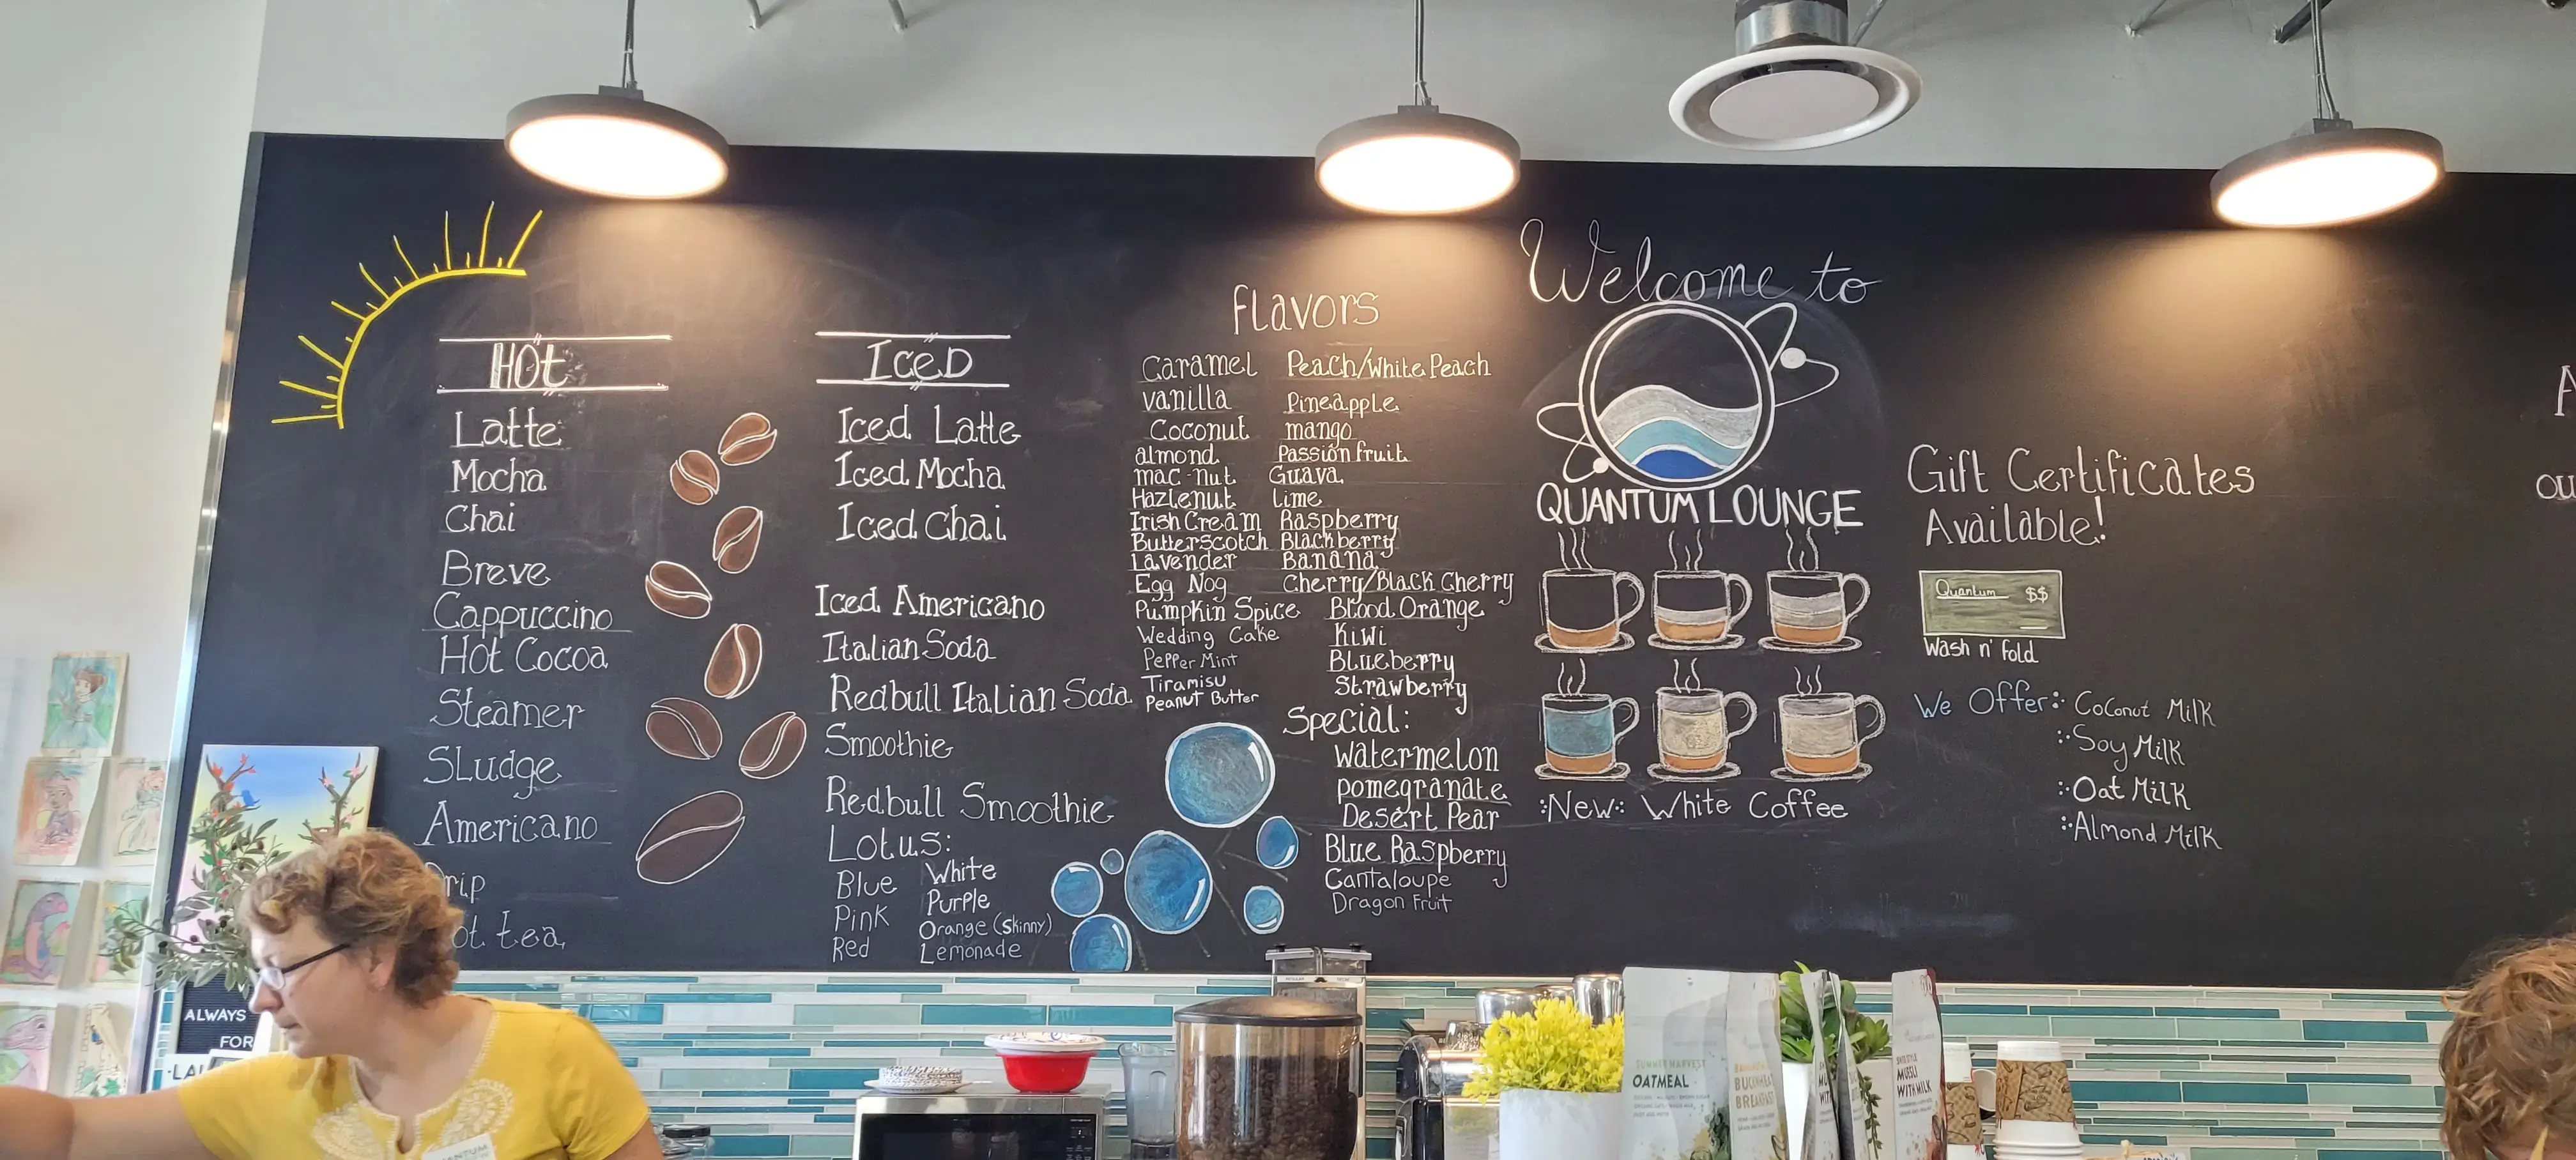 Hot
Latte
Mocha
Chai
Breve
Cappuccino
Hot Cocoa
Steamer
Sludge
Americano
rip
ot tea
Iced
Iced Latte
Iced Mocha
Iced Chai
Iced Americano
Italian Soda
Redbull Italian Soda
Smoothie
Redbull Smoothie
Lotus:
Blue White
Pink Purple
Red Orange (Skinny)
Lemonade
flavors
Caramel
vanilla
Coconut
almond
mac-nut
Hazlenut
Irish Cream
Butterscotch
Lavender
Egg Nog
Pumpkin Spice
Wedding Cake
Pepper Mint
Tiramisu
Peanut Butter
Peach/White Peach
Pineapple
mango
Passion fruit
Guava
lime
Raspberry
Blackberry
Banana
Cherry/Black Cherry
Blood Orange
Kiwi
Blueberry
Strawberry
Special:
Watermelon
pomegranate
Desert Pear
Blue Raspberry
Cantaloupe
Dragon Fruit
Welcome to
QUANTUM LOUNGE
New: White Coffee
Gift Certificates
Available!
Quantum $$
Wash n' Fold
We Offer: Coconut Milk
Soy Milk
Oat Milk
Almond Milk
A
ou
ALWAYS
FOR
LAU
SUMMER HARVEST
OATMEAL
BUCKWHEAT
BREAKFAST
MUESLI
WITH MILK